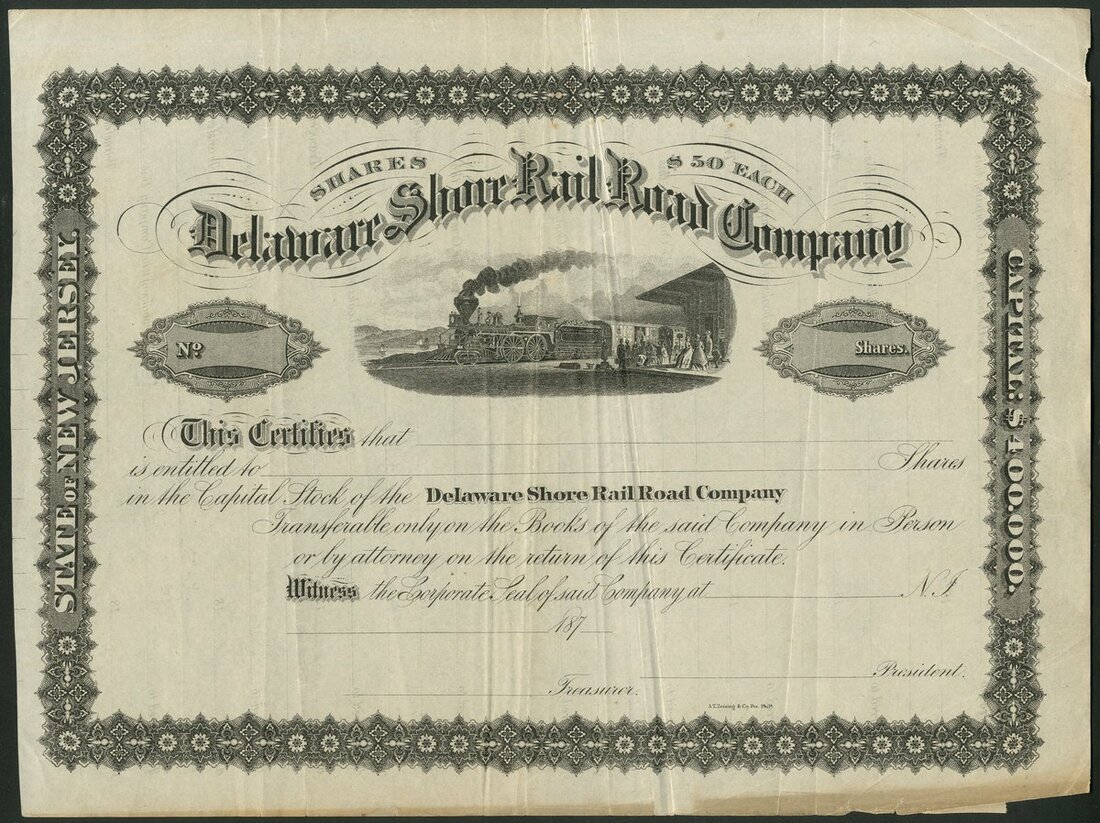 SHARES $50 EACH
Delaware Shore Rail Road Company
STATE OF NEW JERSEY
CAPITAL $1,400,000.
No.
Shares.
This Certifies that
is entitled to Shares
in the Capital Stock of the Delaware Shore Rail Road Company
Transferable only on the Books of the said Company in Person
or by attorney on the return of this Certificate.
Witness the Corporate Seal of said Company at N.J.
187
President.
Treasurer.